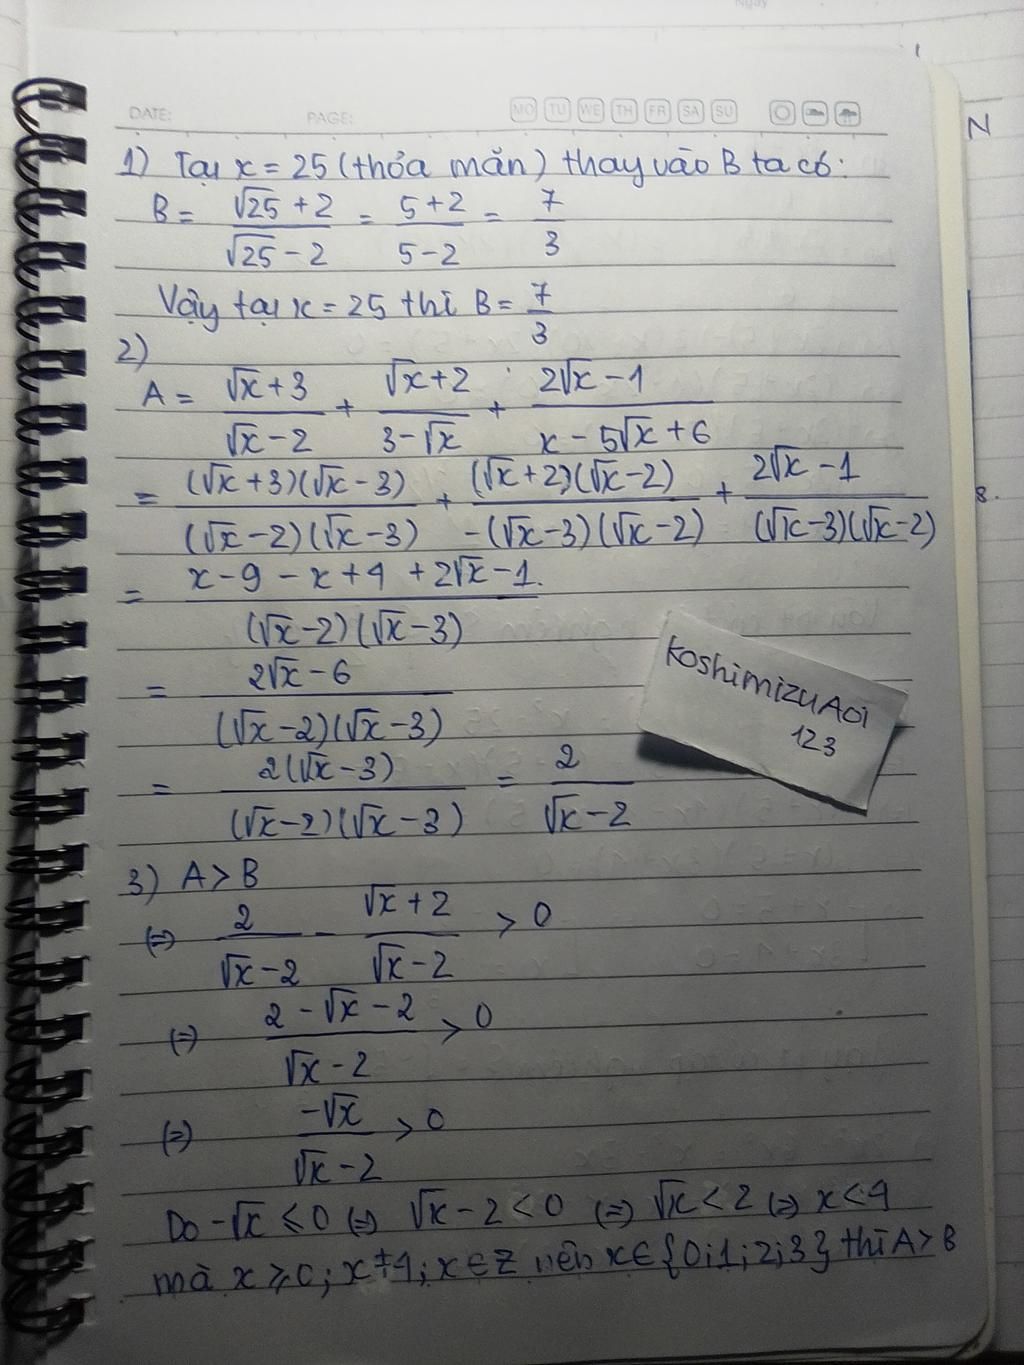 Ngày
DATE: PAGE: MO TU WE TH FR SA SU
N
1) Tại x = 25 (thỏa mãn) thay vào B ta có:
B = (√25 + 2)/(√25 - 2) = (5+2)/(5-2) = 7/3
Vậy tại x = 25 thì B = 7/3
2)
A = (√x + 3)/(√x - 2) + (√x + 2)/(3 - √x) + (2√x - 1)/(x - 5√x + 6)
= ((√x + 3)(√x - 3))/((√x - 2)(√x - 3)) + ((√x + 2)(√x - 2))/(-(√x - 3)(√x - 2)) + (2√x - 1)/((√x - 3)(√x - 2))
8.
= (x - 9 - x + 4 + 2√x - 1)/((√x - 2)(√x - 3))
= (2√x - 6)/((√x - 2)(√x - 3))
KoshimizuAoi
123
= (2(√x - 3))/((√x - 2)(√x - 3)) = 2/(√x - 2)
3) A > B
(=) 2/(√x - 2) - (√x + 2)/(√x - 2) > 0
(=) (2 - √x - 2)/(√x - 2) > 0
(=) (-√x)/(√x - 2) > 0
Do -√x ≤ 0 (=) √x - 2 < 0 (=) √x < 2 (=) x < 4
mà x ≥ 0; x ≠ 4; x ∈ Z nên x ∈ {0;1;2;3} thì A > B